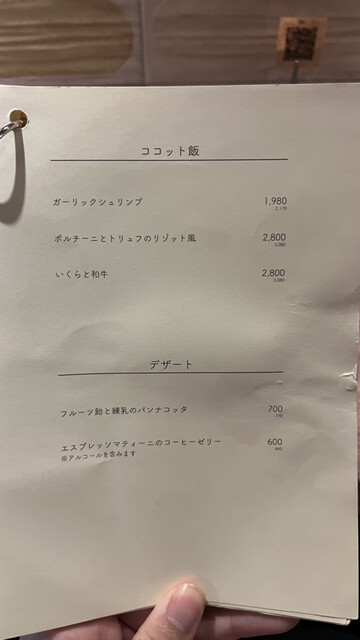 ココット飯
ガーリックシュリンプ 1,980
2,178
ポルチーニとトリュフのリゾット風 2,800
3,080
いくらと和牛 2,800
3,080
デザート
フルーツ飴と練乳のパンナコッタ 700
770
エスプレッソマティーニのコーヒーゼリー 600
660
※アルコールを含みます